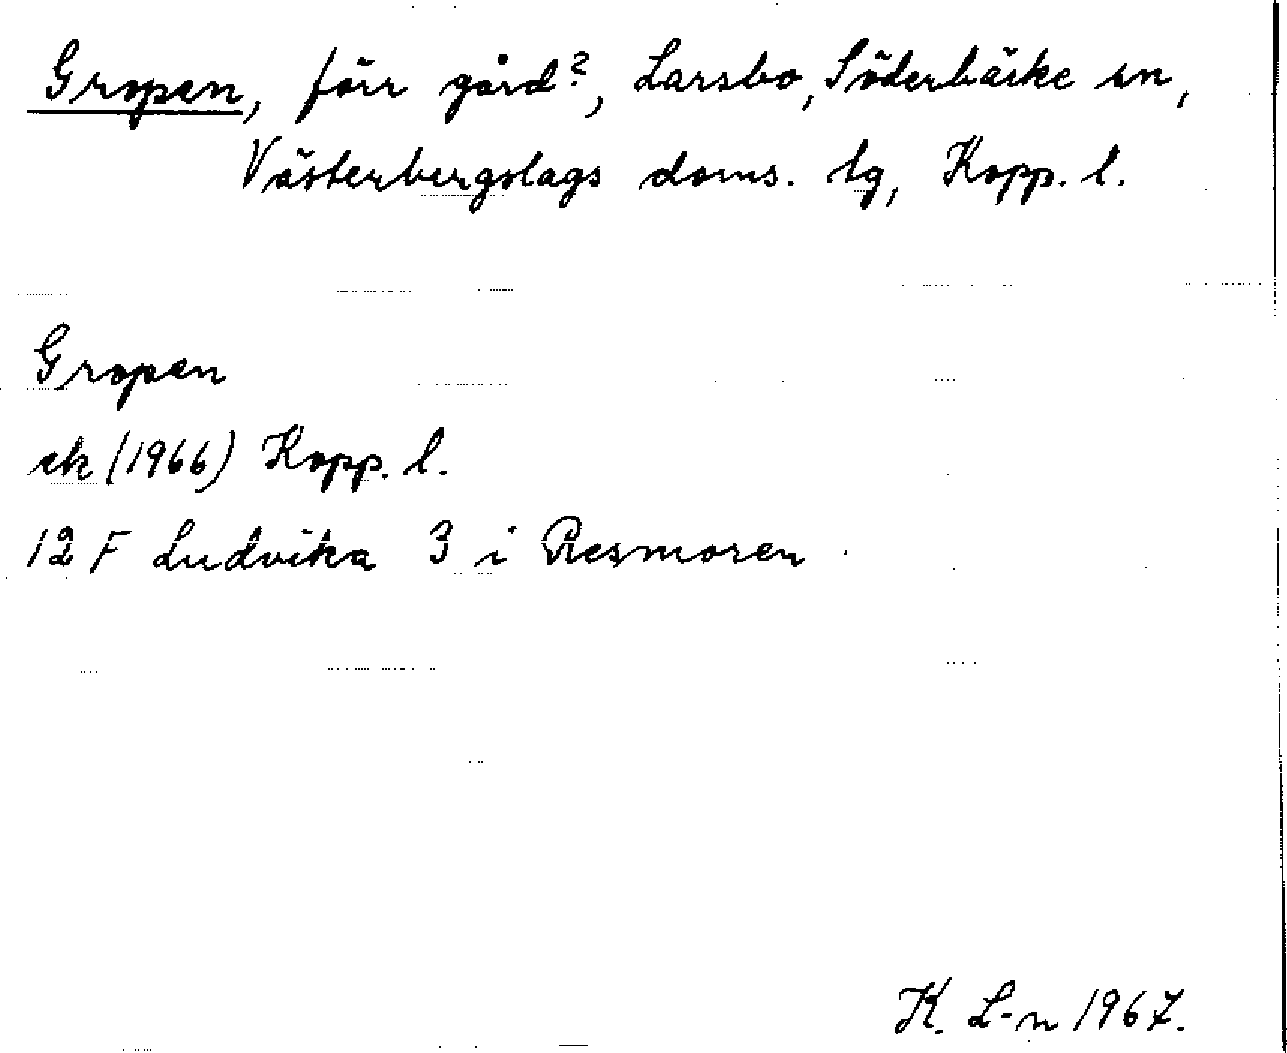 Gropen, förr gård?, Larsbo, Söderbärke sn,
Västerbergslags doms. tg, Kopp. l.
Gropen
ek (1966) Kopp. l.
12 F Ludvika 3 i Resmoren
K. L-n 1967.